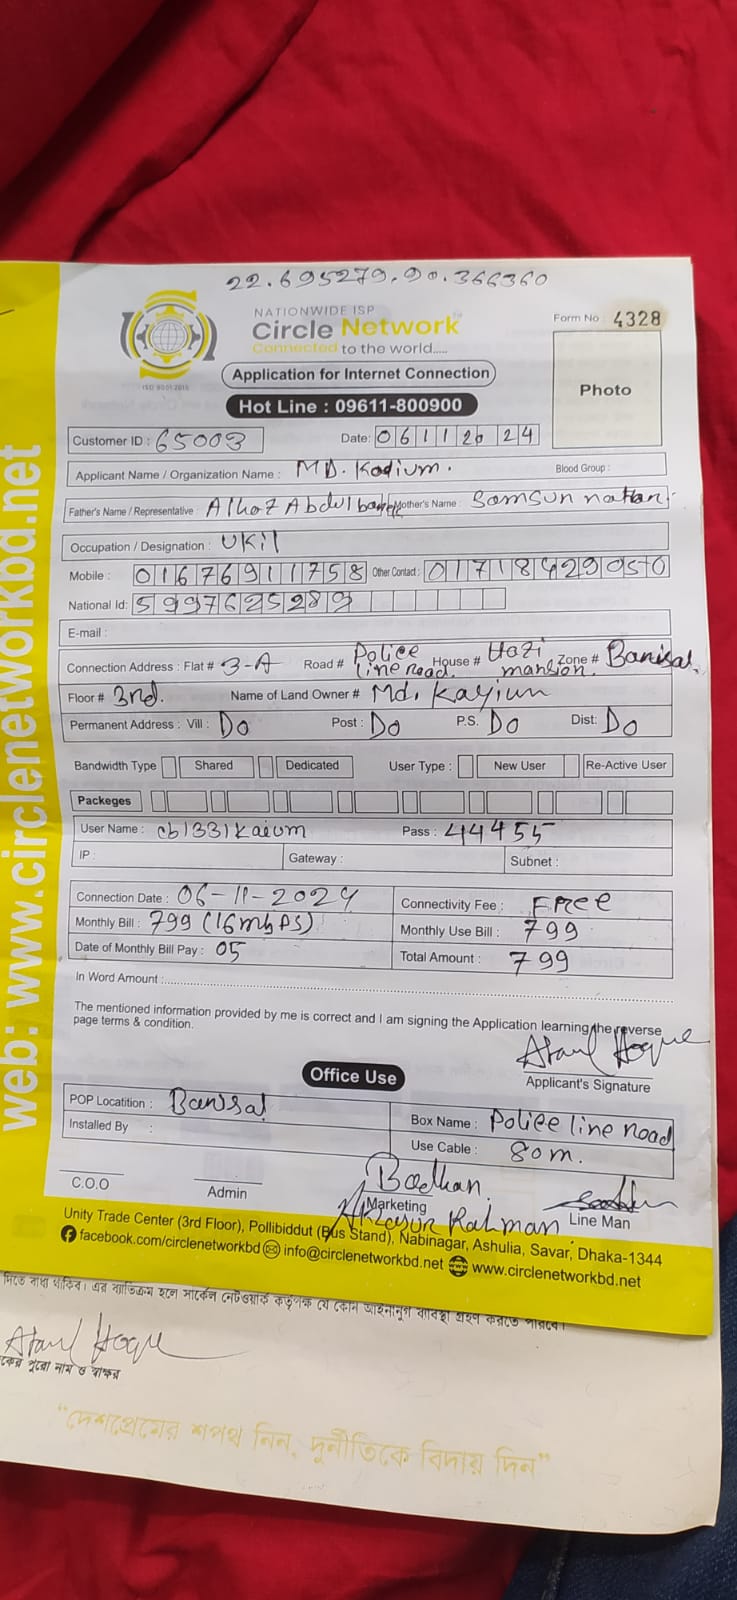 22.695279,90.366360
NATIONWIDE ISP
Circle Network
Connected to the world.....
ISO 9001:2015
Form No 4328
Application for Internet Connection
Photo
Hot Line : 09611-800900
Customer ID : 65003
Date: 06112024
Applicant Name / Organization Name : MD. Kadium.
Blood Group :
Father's Name / Representative : Alhaz Abdul
Mother's Name : Samsun nahar
Occupation / Designation : UKil
Mobile : 01676911758 Other Contact : 01718429050
National Id: 5997625289
E-mail :
Connection Address : Flat # 3-A Road # Police line road. House # Hazi mansion. Zone # Barisal.
Floor # 3rd. Name of Land Owner # Md. Kayium
Permanent Address : Vill : Do Post : Do P.S. Do Dist: Do
Bandwidth Type Shared Dedicated User Type : New User Re-Active User
Packeges
User Name : cb1331kaium Pass : 44455
IP : Gateway : Subnet :
Connection Date : 06-11-2024 Connectivity Fee : FREE
Monthly Bill : 799 (16mbPS) Monthly Use Bill : 799
Date of Monthly Bill Pay : 05 Total Amount : 799
In Word Amount :
The mentioned information provided by me is correct and I am signing the Application learning the reverse
page terms & condition.
Applicant's Signature
Office Use
POP Locatition : Barisal Box Name : Police line road
Installed By : Use Cable : 80m.
C.O.O Admin Marketing Line Man
Rahman
Unity Trade Center (3rd Floor), Pollibiddut (Bus Stand), Nabinagar, Ashulia, Savar, Dhaka-1344
facebook.com/circlenetworkbd info@circlenetworkbd.net www.circlenetworkbd.net
web: www.circlenetworkbd.net
দিতে বাধ্য থাকিব। এর ব্যতিক্রম হলে সার্কেল নেটওয়ার্ক কর্তৃপক্ষ যে কোন আইনানুগ ব্যবস্থা গ্রহণ করতে পারবে।
পুরো নাম ও স্বাক্ষর
“দেশপ্রেমের শপথ নিন, দুর্নীতিকে বিদায় দিন”